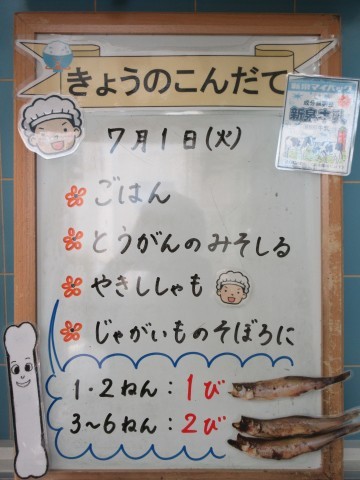 きょうのこんだて
7月1日(火)
ごはん
とうがんのみそしる
やきししゃも
じゃがいものそぼろに
1・2ねん:1び
3~6ねん:2び